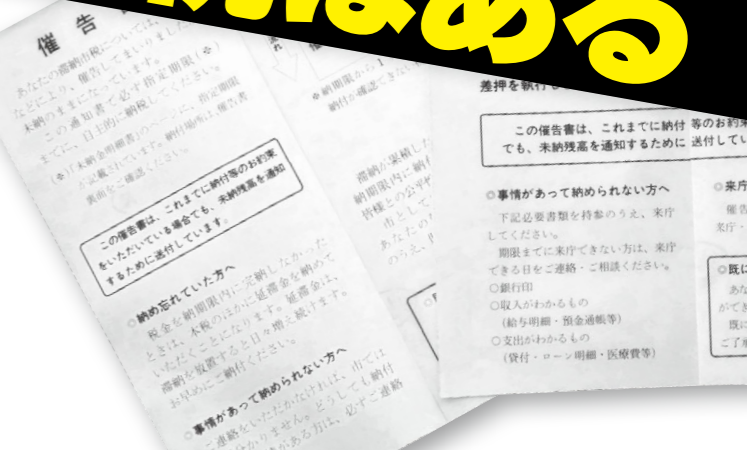 はある
催告
あなたの滞納市税については、
などにより、催告してまいりました
未納のままになっています。
この通知書で必ず指定期限(※)
までに、自主的に納税してください。
(※)「未納金明細書」のページに、指定期限
が記載されています。納付場所は、催告書
裏面をご確認ください。
この催告書は、これまでに納付等のお約束
をいただいている場合でも、未納残高を通知
するために送付しています。
◎納め忘れていた方へ
税金を納期限内に完納しなかった
ときは、本税のほかに延滞金を納めて
いただくことになります。延滞金は、
滞納を放置すると日々増え続けます。
お早めにご納付ください。
◎事情があって納められない方へ
ご連絡をいただかなければ、市では
分かりません。どうしても納付
がある方は、必ずご連絡
※納期限から1
納付が確認できない
滞納が累積し
納期限内に納付
皆様との公平
市として
あなたの
のうえ、
差押を執行
この催告書は、これまでに納付等のお約束
でも、未納残高を通知するために送付してい
◎事情があって納められない方へ
下記必要書類を持参のうえ、来庁
してください。
期限までに来庁できない方は、来庁
できる日をご連絡・ご相談ください。
○銀行印
○収入がわかるもの
(給与明細・預金通帳等)
○支出がわかるもの
(貸付・ローン明細・医療費等)
◎来庁
催告
来庁・
◎既に
あな
ができ
既に
ご了承